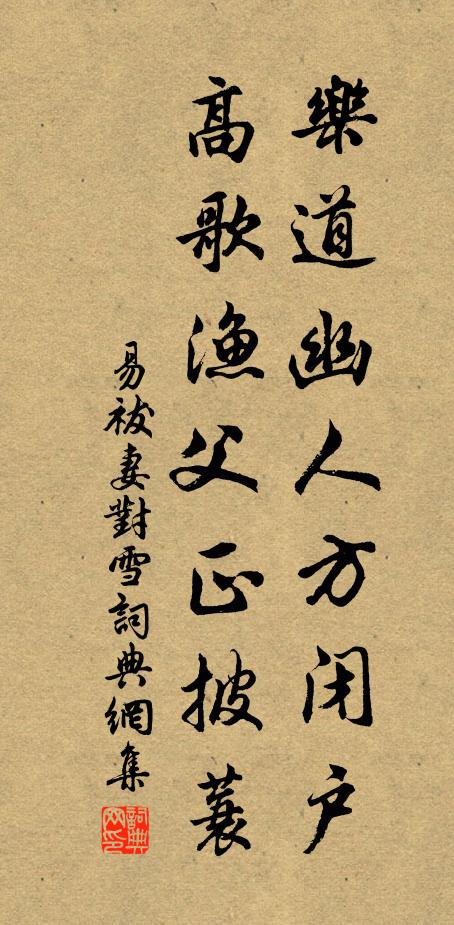 樂道幽人方闭户
高歌漁父正披蓑
易祓妻對雪詞典網集
詞典网印